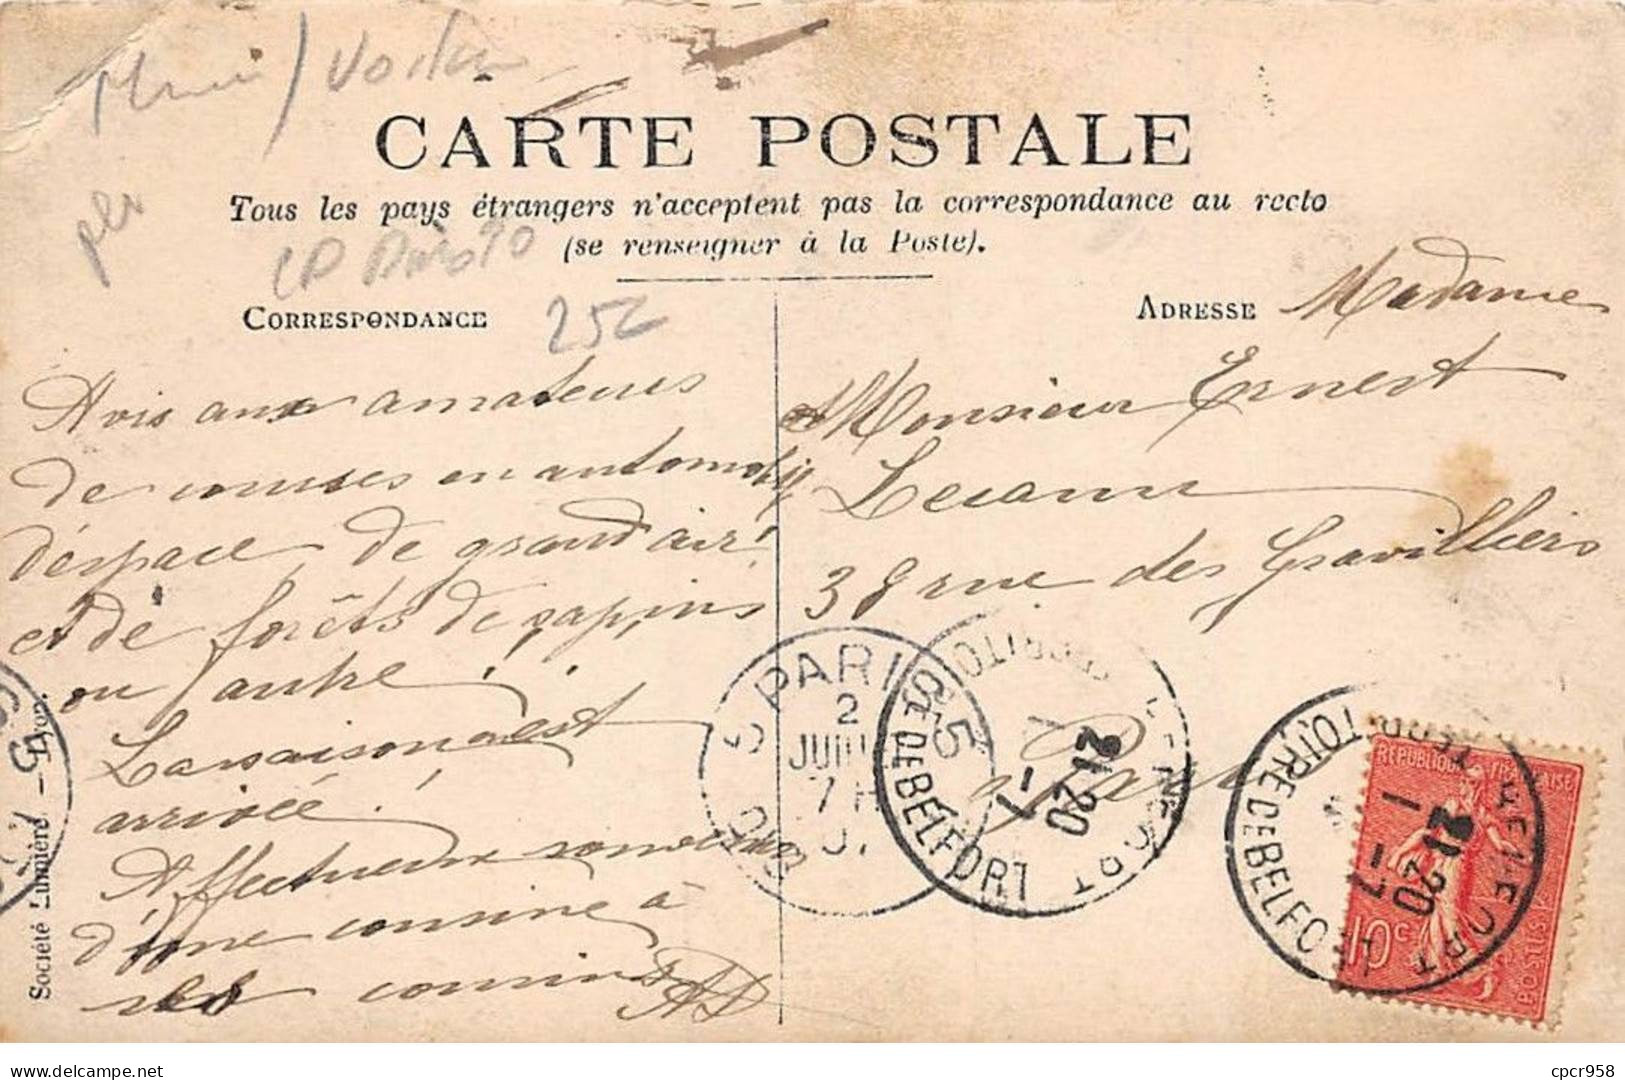 CARTE POSTALE
Tous les pays étrangers n'acceptent pas la correspondance au recto
(se renseigner à la Poste).
CP
252
CORRESPONDANCE
ADRESSE Madame
Monsieur Ernest
Lecanu
38 rue des Gravilliers
Avis aux amateurs
de courses en automobile
d'espace de grand air!
et de forêts de sapins
ou autre!
La saison est
arrivée!
Affectueux souvenir
d'une cousine à
ses cousins
Société Lumière - Lyon.
PARIS
2
JUIN
7
BELFORT
TERRITOIRE DE BELFORT
21 20
1-7
BELFORT
TERRITOIRE DE BELFORT
21 20
1-7
REPUBLIQUE FRANÇAISE
10c
POSTES
cpcr958